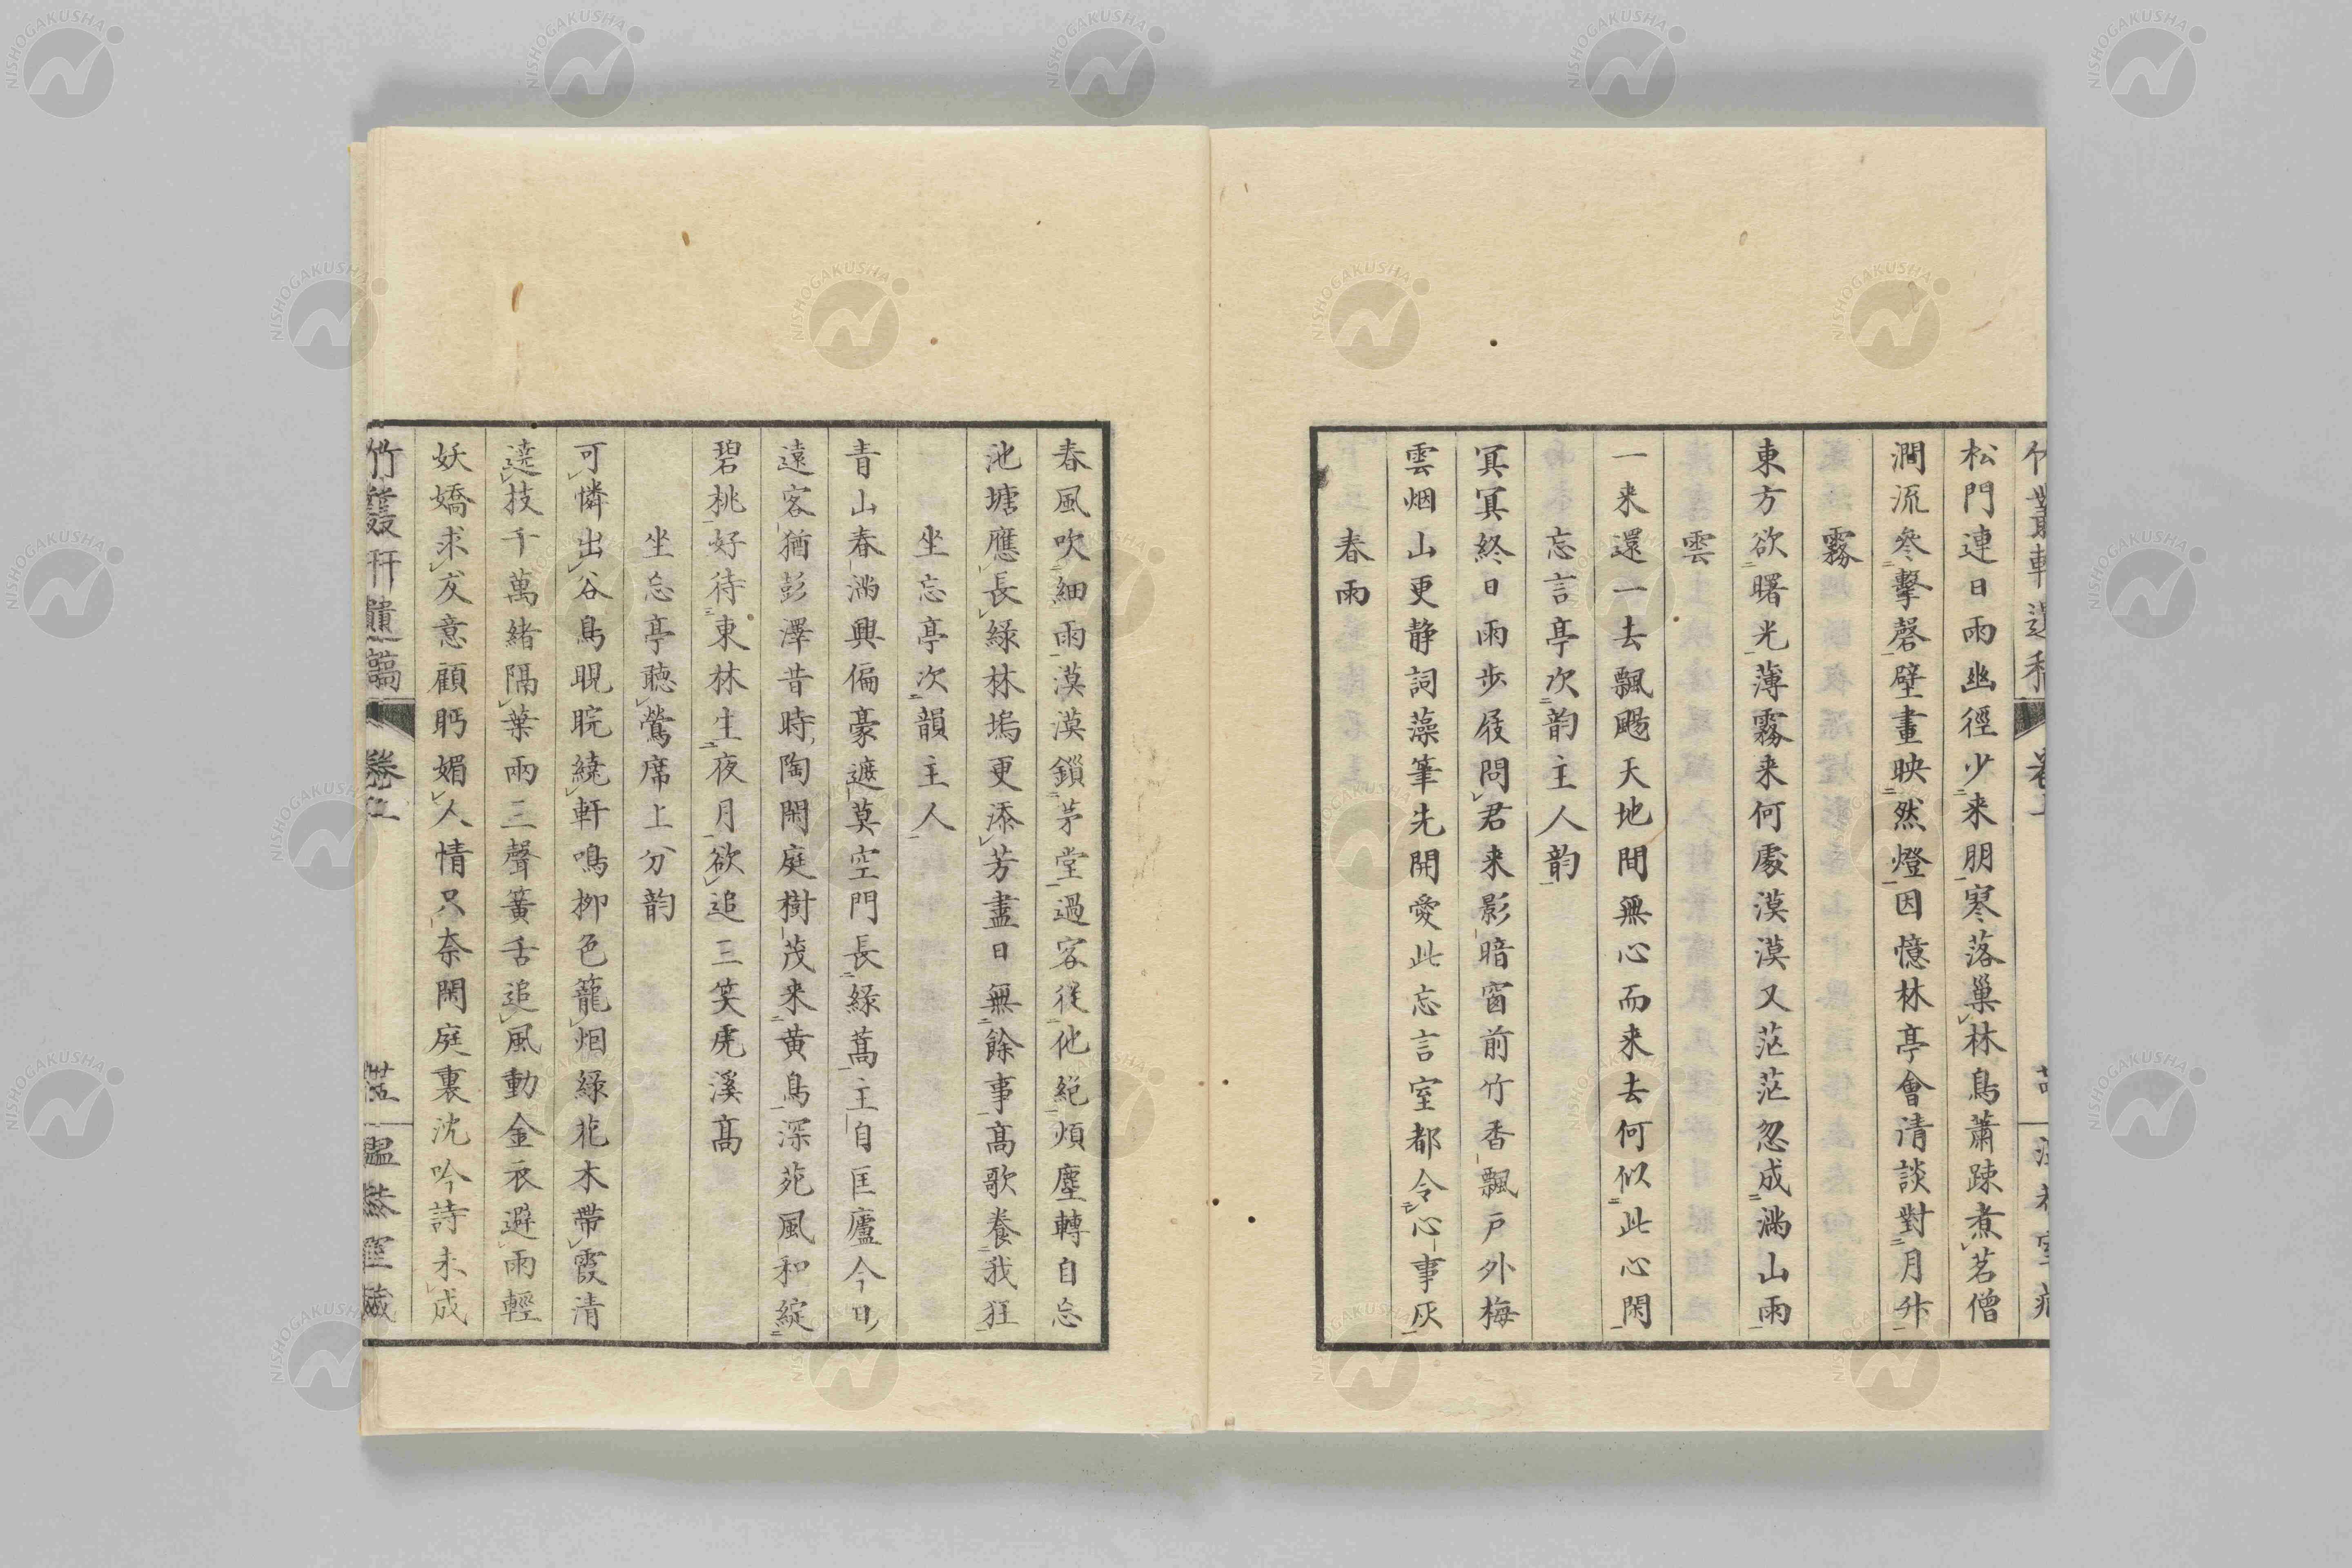 松門連日雨幽徑少来朋寒落巢林鳥蕭踈煮茗僧
澗流參擊磬壁畫映然燈因憶林亭會清談對月升
霧
東方欲曙光薄霧来何處漠漠又茫茫忽成満山雨
雲
一来還一去飄颺天地間無心而来去何似此心閑
忘言亭次韵主人韵
冥冥終日雨步屐問君来影暗窗前竹香飄戸外梅
雲烟山更静詞藻筆先開愛此忘言室都令心事灰
春雨
春風吹細雨漠漠鎖茅堂過客従他絕煩塵轉自忘
池塘應長綠林塢更添芳盡日無餘事髙歌養我狂
坐忘亭次韻主人
青山春満興偏豪遮莫空門長緑蒿主自匡廬今日
遠客猶彭澤昔時陶閑庭樹茂来黄鳥深苑風和綻
碧桃好待東林生夜月欲追三笑虎溪髙
坐忘亭聴鶯席上分韵
可憐出谷鳥睍睆繞軒鳴柳色籠烟緑花木帶霞清
遶枝千萬緒隔葉兩三聲簧舌追風動金衣避雨輕
妖嬌求友意顧眄媚人情只奈閑庭裏沈吟詩未成
卷上
NISHOGAKUSHA